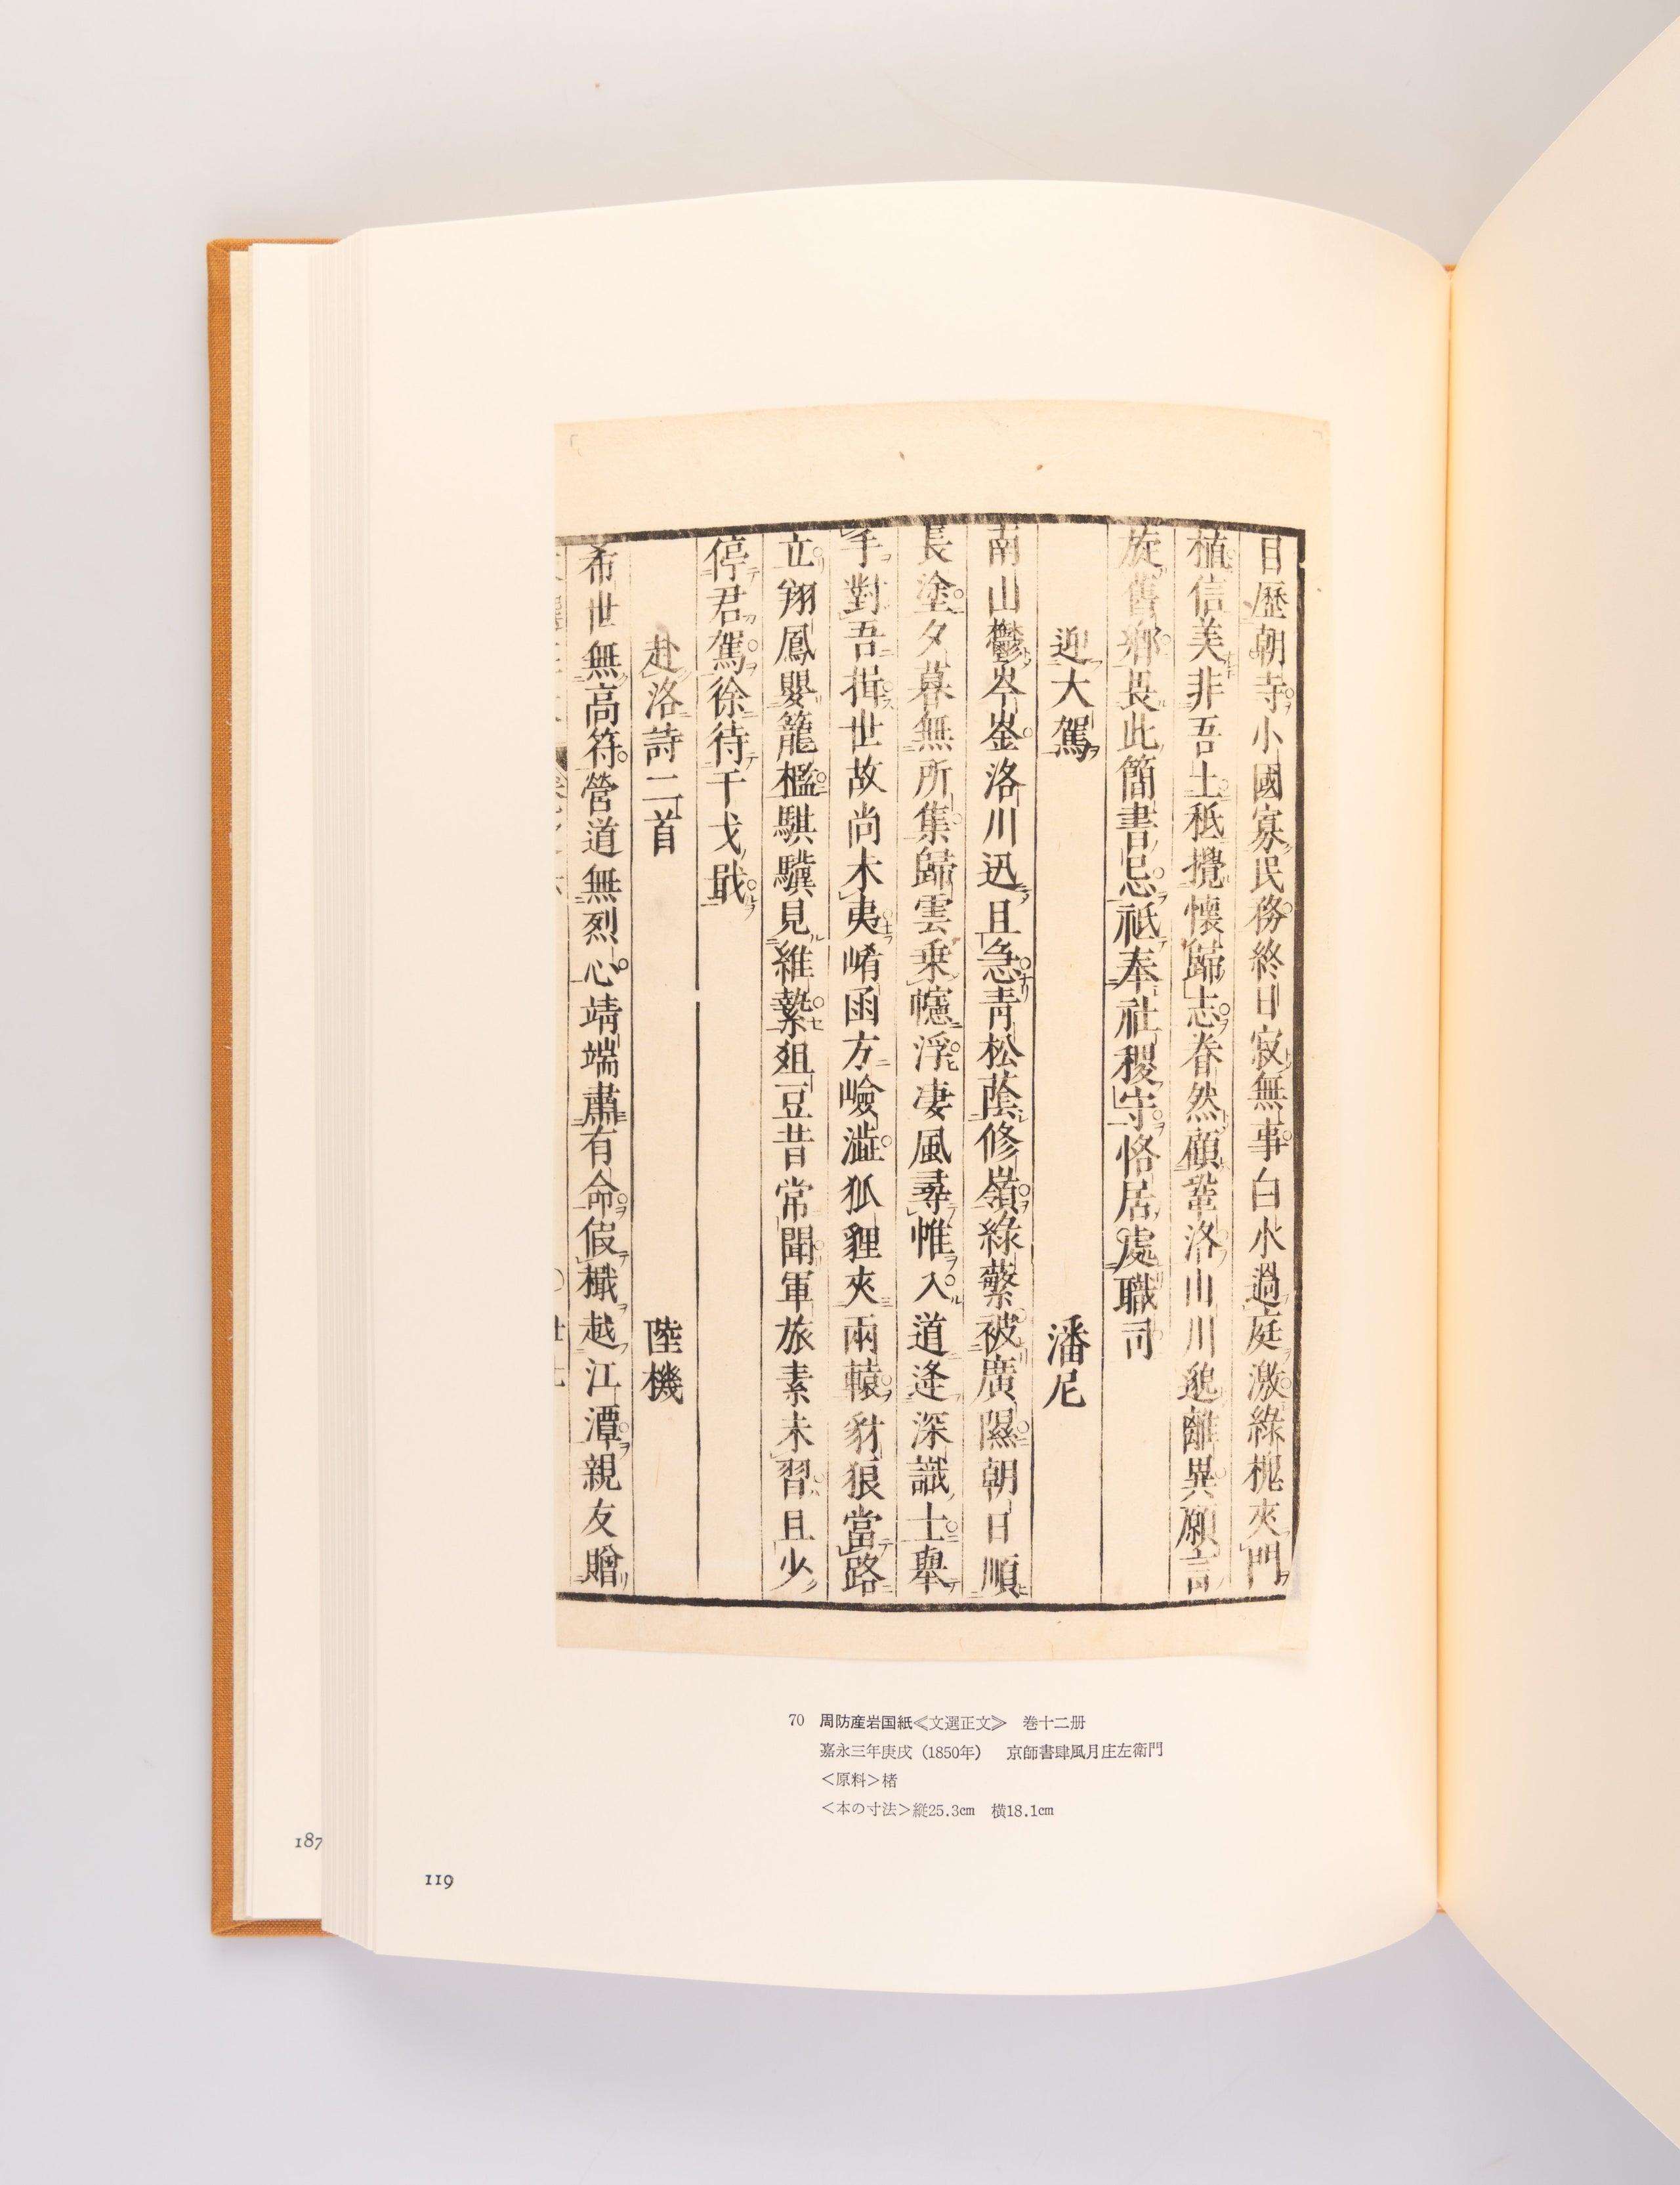 日歷朝寺小國寡民務終日寂無事白水過庭激綠槐夾門
植信美非吾土秪攪懷歸志眷然顧鞏洛山川邈離異願言
旋舊鄉畏此簡書忌祗奉社稷守恪居處職司
迎大駕　潘尼
南山鬱岑崟洛川迅且急青松蔭修嶺綠蘩被廣隰朝日順
長塗夕暮無所集歸雲乗幰浮凄風尋帷入道逢深識士舉
手對吾揖世故尚未夷崤函方嶮澁狐狸夾兩轅豺狼當路
立翔鳳嬰籠檻騏驥見維縶爼豆昔常聞軍旅素未習且少
停君駕徐待干戈戢
赴洛詩二首　陸機
希世無高符營道無烈心靖端肅有命假檝越江潭親友贈
70　周防産岩国紙≪文選正文≫　巻十二册
嘉永三年庚戌（1850年）　京師書肆風月庄左衛門
＜原料＞楮
＜本の寸法＞縦25.3cm　横18.1cm
187
119